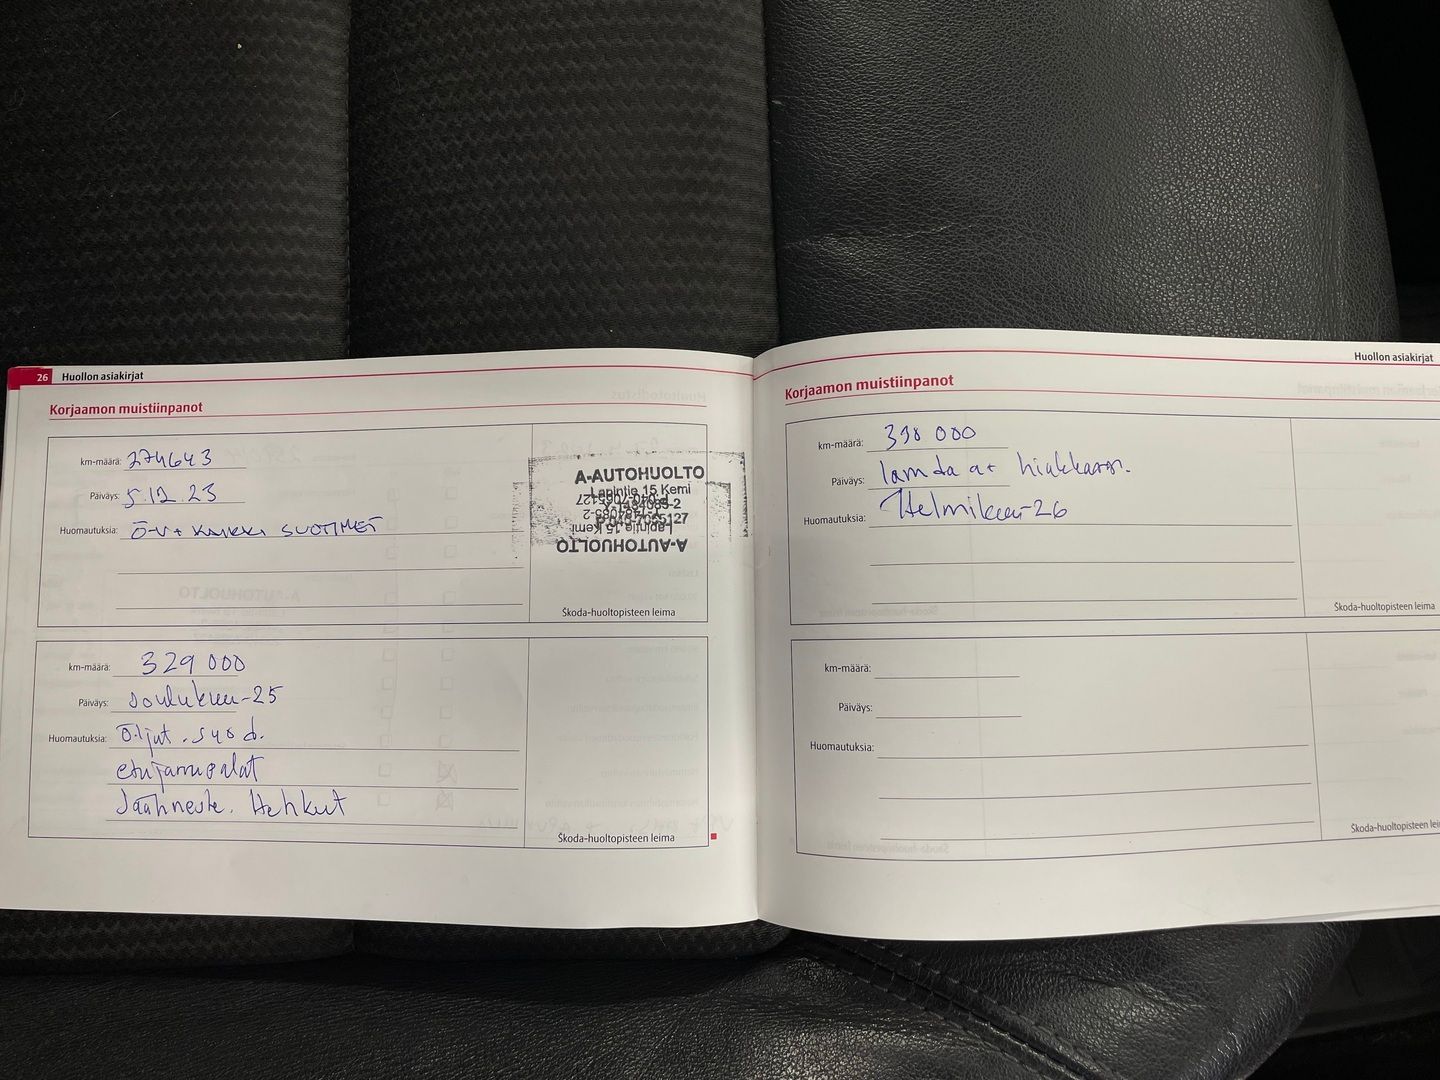 26 Huollon asiakirjat
Korjaamon muistiinpanot
km-määrä: 274643
Päiväys: 5.12.23
Huomautuksia: Ö-V+ KAIKKI SUOTIMET
A-AUTOHUOLTO
Lapintie 15 Kemi
Škoda-huoltopisteen leima
km-määrä: 329 000
Päiväys: Joulukuu-25
Huomautuksia: Öljyt. suod.
etujarrupalat
Jäähneste. Hehkut
Škoda-huoltopisteen leima
Huollon asiakirjat
Korjaamon muistiinpanot
km-määrä: 330 000
Päiväys: lamda at
Huomautuksia: Helmikuu-26
Škoda-huoltopisteen leima
km-määrä:
Päiväys:
Huomautuksia:
Škoda-huoltopisteen